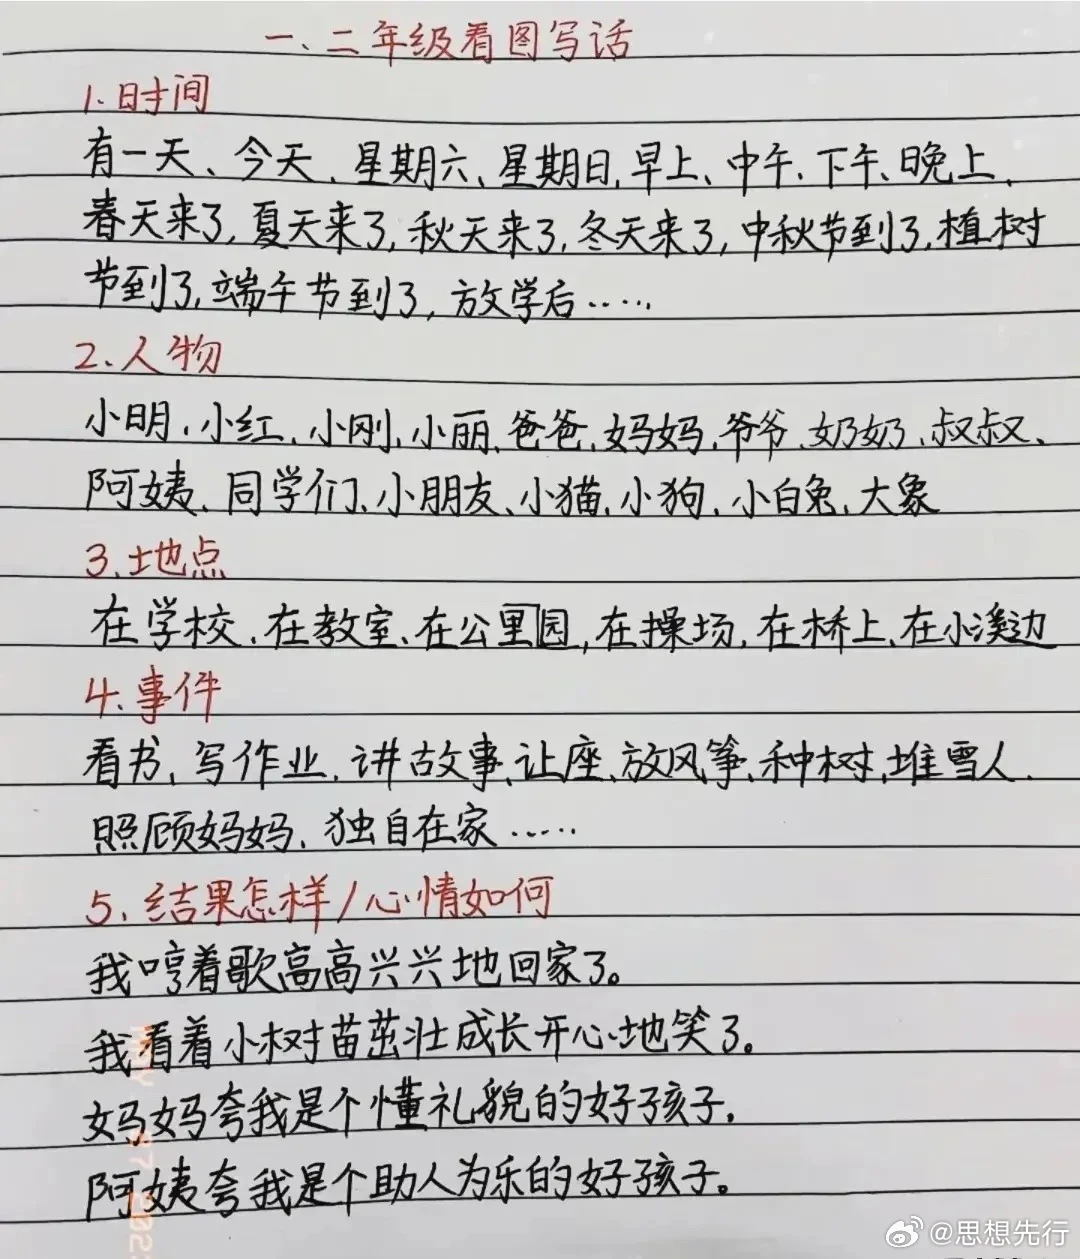 一、二年级看图写话
1.时间
有一天、今天、星期六、星期日、早上、中午、下午、晚上、
春天来了,夏天来了,秋天来了,冬天来了,中秋节到了,植树
节到了,端午节到了,放学后……
2.人物
小明、小红、小刚、小丽、爸爸、妈妈、爷爷、奶奶、叔叔、
阿姨、同学们、小朋友、小猫、小狗、小白兔、大象
3.地点
在学校、在教室、在公里园,在操场,在桥上、在小溪边
4.事件
看书、写作业、讲故事、让座、放风筝、种树、堆雪人、
照顾妈妈、独自在家……
5.结果怎样/心情如何
我哼着歌高高兴兴地回家了。
我看着小树苗茁壮成长开心地笑了。
妈妈夸我是个懂礼貌的好孩子。
阿姨夸我是个助人为乐的好孩子。
@思想先行